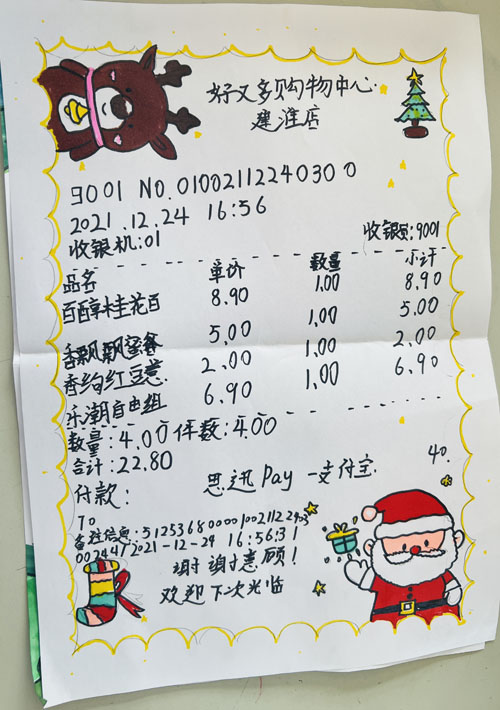 好又多购物中心
建淮店
9001 NO.0100211224030 0
2021.12.24 16:56
收银机:01 收银员:9001
品名 单价 数量 小计
百醇桂花百 8.90 1.00 8.90
香飘飘蜜 5.00 1.00 5.00
香约红豆薏 2.00 1.00 2.00
乐潮自由组 6.90 1.00 6.90
数量:4.00 件数:4.00
合计:22.80
付款: 思迅Pay-支付宝 40.
70
备注信息:512536800001002112240
00244 / 2021-12-24 16:56:31
谢谢惠顾!
欢迎下次光临